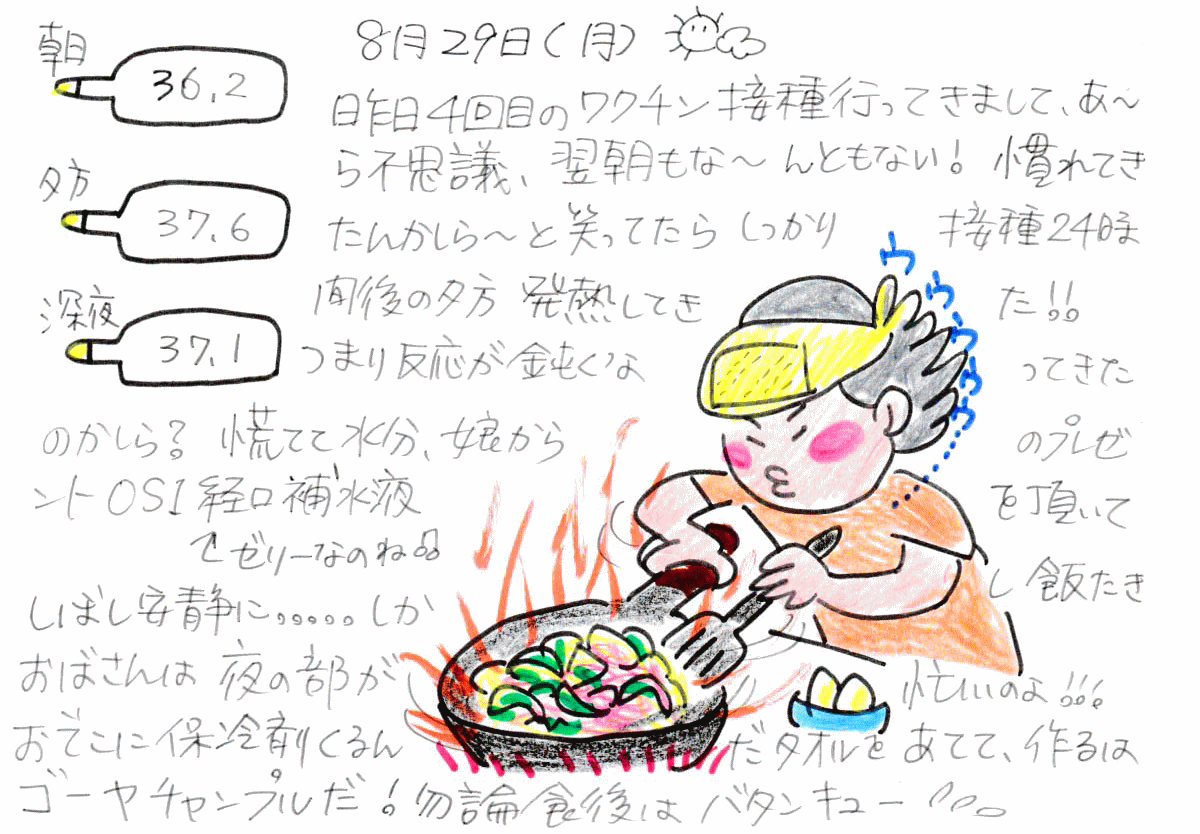 8月29日(月)
朝
36.2
夕方
37.6
深夜
37.1
昨日4回目のワクチン接種行ってきまして、あ〜
ら不思議、翌朝もな〜んともない! 慣れてき
たんかしら〜と笑ってたら しっかり 接種24時
間後の夕方 発熱してき た!!
つまり反応が鈍くな ってきた
のかしら? 慌てて水分、娘から のプレゼ
ントOS1経口補水液 を頂いて
ゼリーなのね
しばし安静に。。。。。しか し飯たき
おばさんは 夜の部が 忙しいのよ!!!
おでこに保冷剤くるん だタオルをあてて、作るは
ゴーヤチャンプルだ! 勿論食後はバタンキュー
ウウウウウ